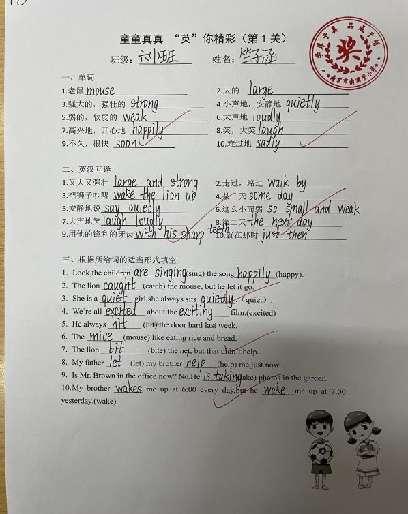 童童真真 “英”你精彩（第1关）
班级： 姓名：
一、单词
1.老鼠 mouse 2.大的 large
3.强大的，强壮的 strong 4.小声地，安静地 quietly
5.弱的，软弱的 weak 6.大声地 loudly
7.高兴地，开心地 happily 8.笑，大笑 laugh
9.不久，很快 soon 10.难过地 sadly
二、
1.又大又强壮 large and strong 2.走过，路过 walk by
3. wake the lion up 4.某一天 some day
5. say quietly 6.这么小而弱 so small and weak
7.大声地笑 laugh loudly 8.第二天 the next day
9.用他的锋利的牙齿 with his sharp teeth 10. just then
三、根据所给词的适当形式填空
1. Look the children are singing (sing) the song happily (happy).
2. The lion caught (catch) the mouse, but he let it go.
3. She is a quiet girl she always says quietly (quiet).
4. We're all excited about the exciting film.(excited)
5. He always hit (hit) the door hard last week.
6. The mice (mouse) like eating rice and bread.
7. The lion bit (bite) the net, but that didn't help.
8. My father let (let) my brother help me just now
9. Is Mr. Brown in the office now? No.He is taking (take) photos in the garden.
10.My brother wakes me up at 6:00 every day,but he woke me up at 7:00
yesterday.(wake)
奖